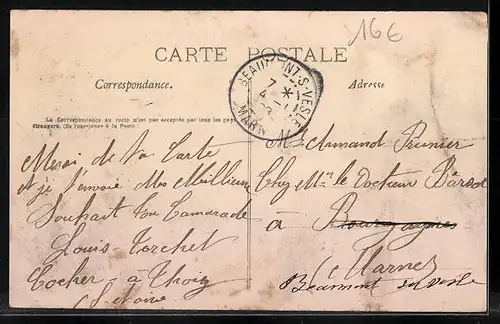 16€
CARTE POSTALE
Correspondance.
Adresse
BEAUMONT-S-VESLE
7
MARNE
La Correspondance au recto n'est pas acceptée par tous les pays
étrangers. (Se renseigner à la Poste.)
Merci de ta Carte
et je t'envoie Mes Meilleurs
Souhait ton Camarade
Louis Torchet
Cocher - a Thoix
Mr Armand Prunier
Chez Mr le Docteur
à
Marne
Beaumont sur Vesle